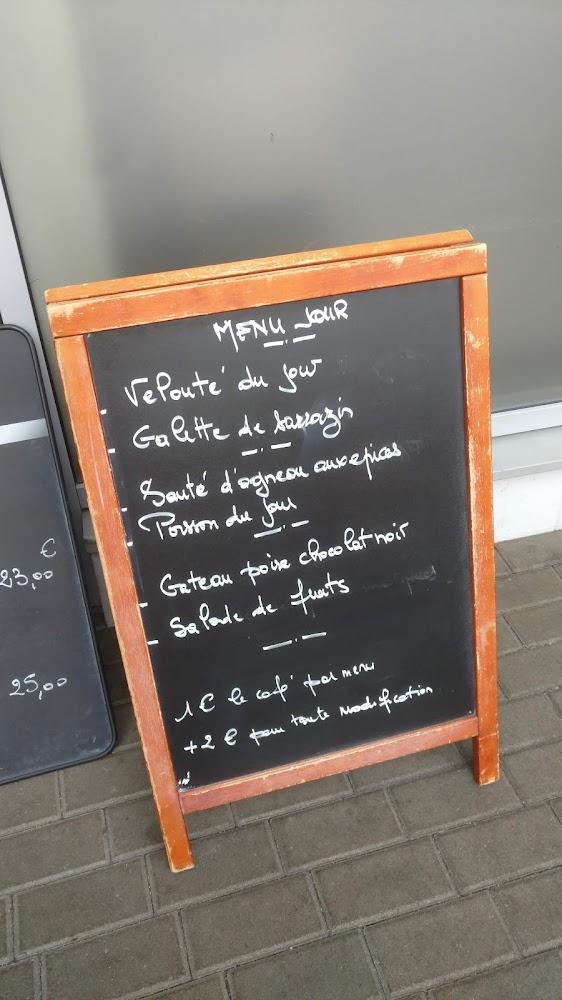 MENU JOUR
- Velouté du jour
- Galette de sarrazin
- Sauté d'agneau aux epices
- Poisson du jour
- Gateau poire chocolat noir
- Salade de fruits
1 € le café par menu
+ 2 € pour toute modification
€
23,00
25,00